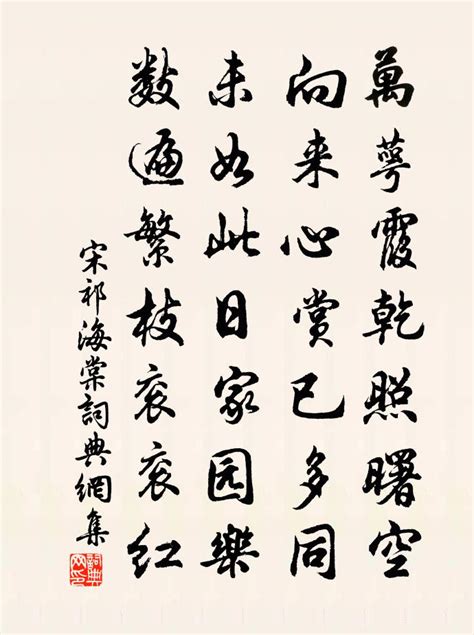 萬萼霞乾照曙空
向来心赏已多同
未如此日家园樂
數遍繁枝衮衮红
宋祁海棠詞典網集